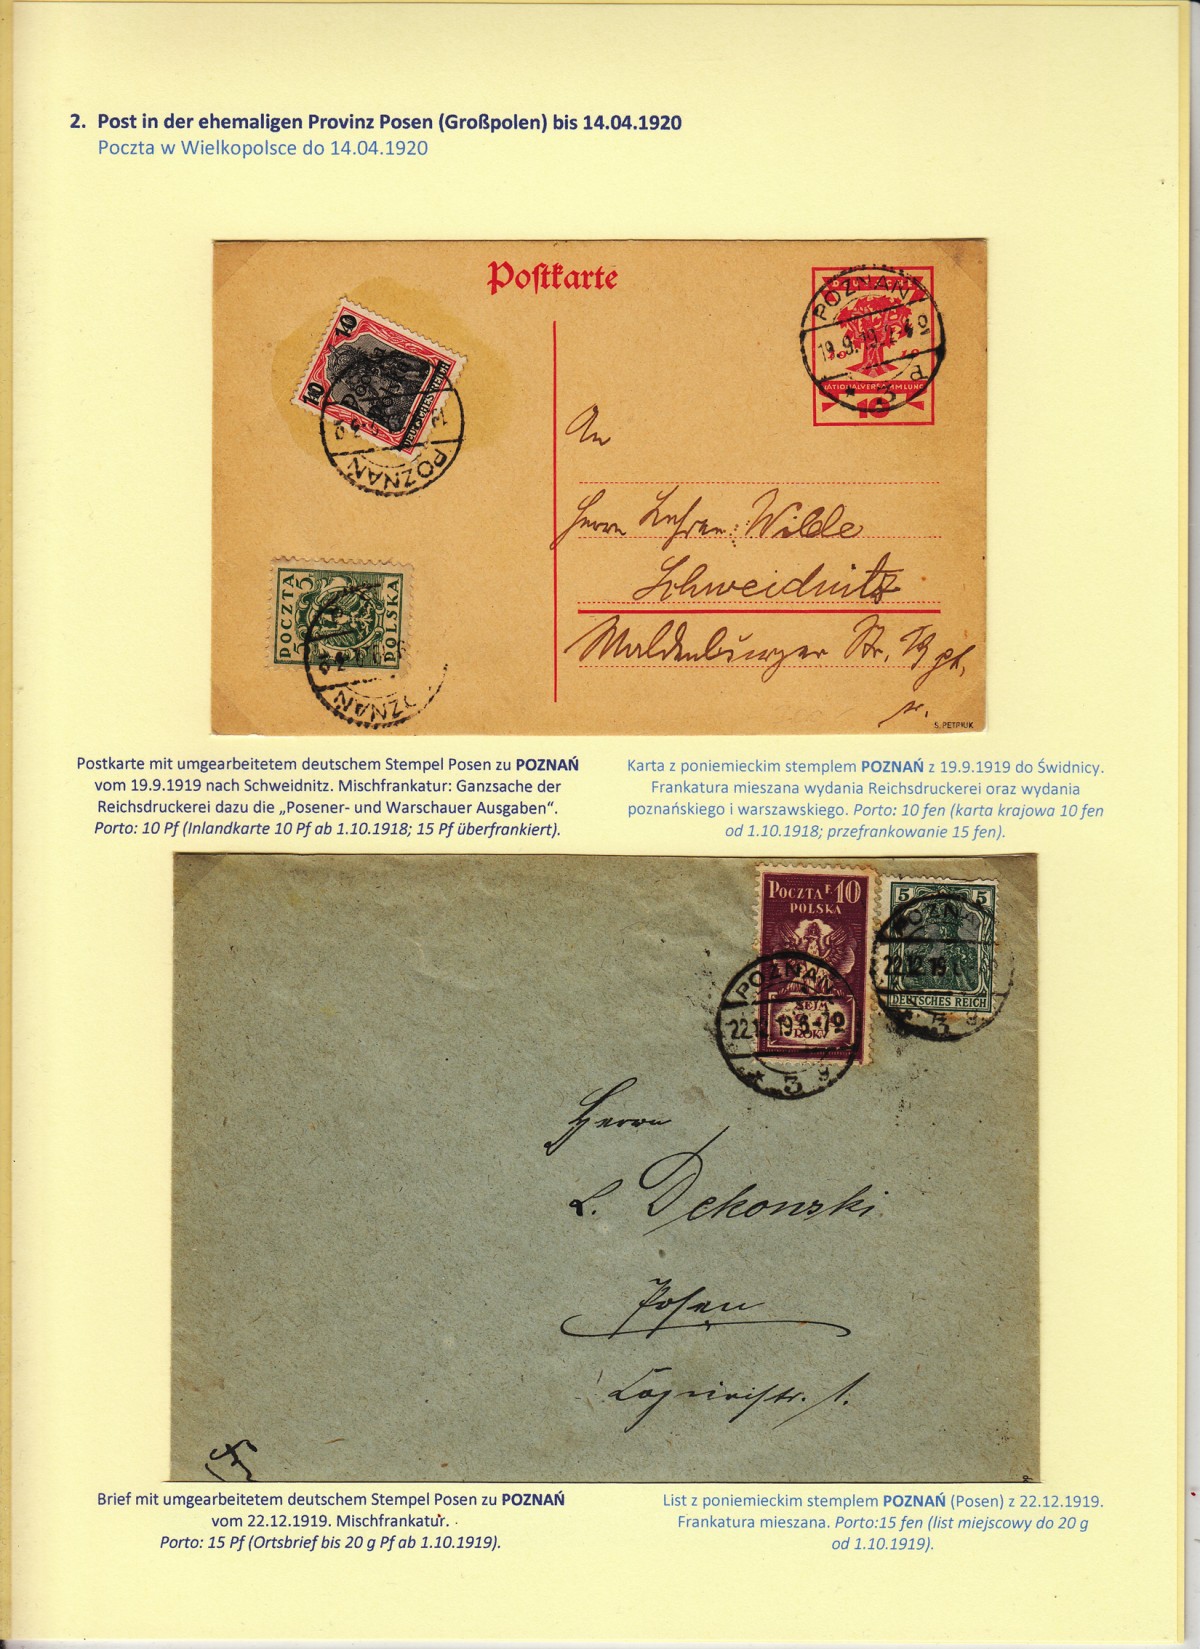 2. Post in der ehemaligen Provinz Posen (Großpolen) bis 14.04.1920
Poczta w Wielkopolsce do 14.04.1920
Postkarte
10
10
DEUTSCHES REICH
POZNAŃ
POZNAŃ
19.9.19.
* 3
NATIONALVERSAMMLUNG
10
An
Herrn Lehrer Wilde
Schweidnitz
Waldenburger Str. 19 pt.
POCZTA
5
5
POLSKA
S. PETRIUK
Postkarte mit umgearbeitetem deutschem Stempel Posen zu POZNAŃ
vom 19.9.1919 nach Schweidnitz. Mischfrankatur: Ganzsache der
Reichsdruckerei dazu die „Posener- und Warschauer Ausgaben“.
Porto: 10 Pf (Inlandkarte 10 Pf ab 1.10.1918; 15 Pf überfrankiert).
Karta z poniemieckim stemplem POZNAŃ z 19.9.1919 do Świdnicy.
Frankatura mieszana wydania Reichsdruckerei oraz wydania
poznańskiego i warszawskiego. Porto: 10 fen (karta krajowa 10 fen
od 1.10.1918; przefrankowanie 15 fen).
POCZTA F. 10
POLSKA
POZNAŃ
22.12.19.6-7
* 3 g
5 5
POZNAŃ
22.12.19
DEUTSCHES REICH
Herrn
L. Dekonski
Posen
Brief mit umgearbeitetem deutschem Stempel Posen zu POZNAŃ
vom 22.12.1919. Mischfrankatur.
Porto: 15 Pf (Ortsbrief bis 20 g Pf ab 1.10.1919).
List z poniemieckim stemplem POZNAŃ (Posen) z 22.12.1919.
Frankatura mieszana. Porto:15 fen (list miejscowy do 20 g
od 1.10.1919).